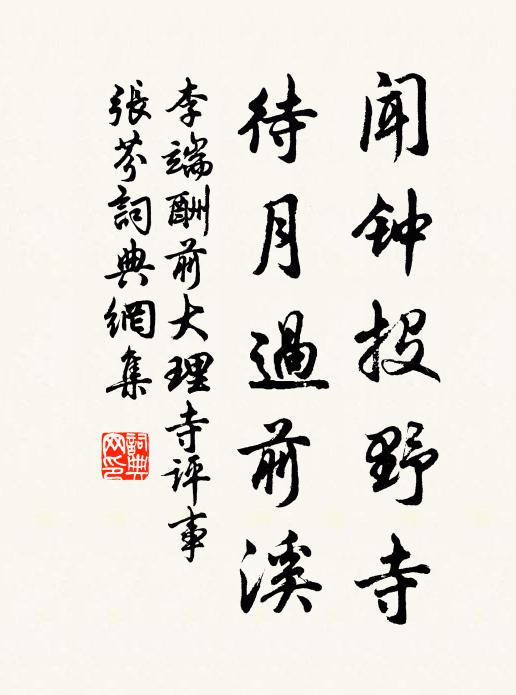 闻钟投野寺
待月過前溪
李端酬前大理寺评事
張芬詞典網集
詞典网印